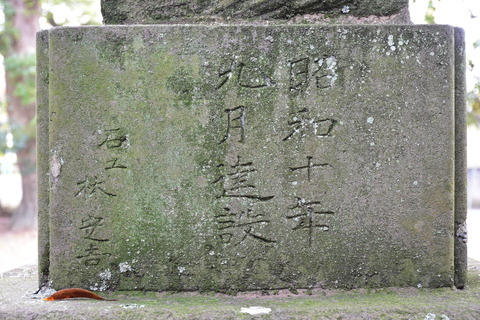 昭和十年
九月建設
石工
林安吉